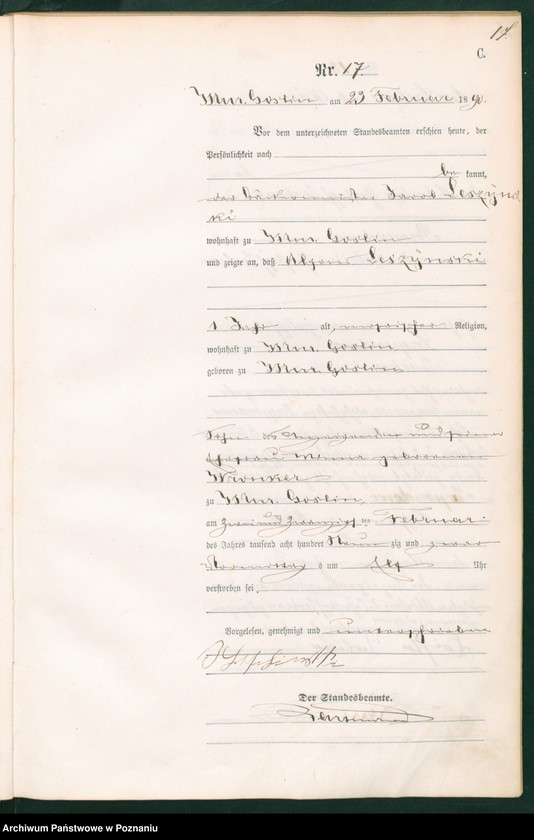 17.
C.
Nr. 17.
Mur. Goslin, am 23 Februar 1890.
Vor dem unterzeichneten Standesbeamten erschien heute, der
Persönlichkeit nach
be kannt,
der Bäckermeister Jacob Leszÿns
ki
wohnhaft zu Mur. Goslin
und zeigte an, daß Alfons Leszÿnski
1 Jahr alt, mosaischer Religion,
wohnhaft zu Mur. Goslin
geboren zu Mur. Goslin
Sohn des Anzeigenden und seiner
Ehefrau geborenen
Wronker
zu Mur. Goslin,
am zwei und zwanzigsten Februar
des Jahres tausend acht hundert Neun zig und zwar
Vormittags um elf Uhr
verstorben sei.
Vorgelesen, genehmigt und unterschrieben
Der Standesbeamte.
Archiwum Państwowe w Poznaniu